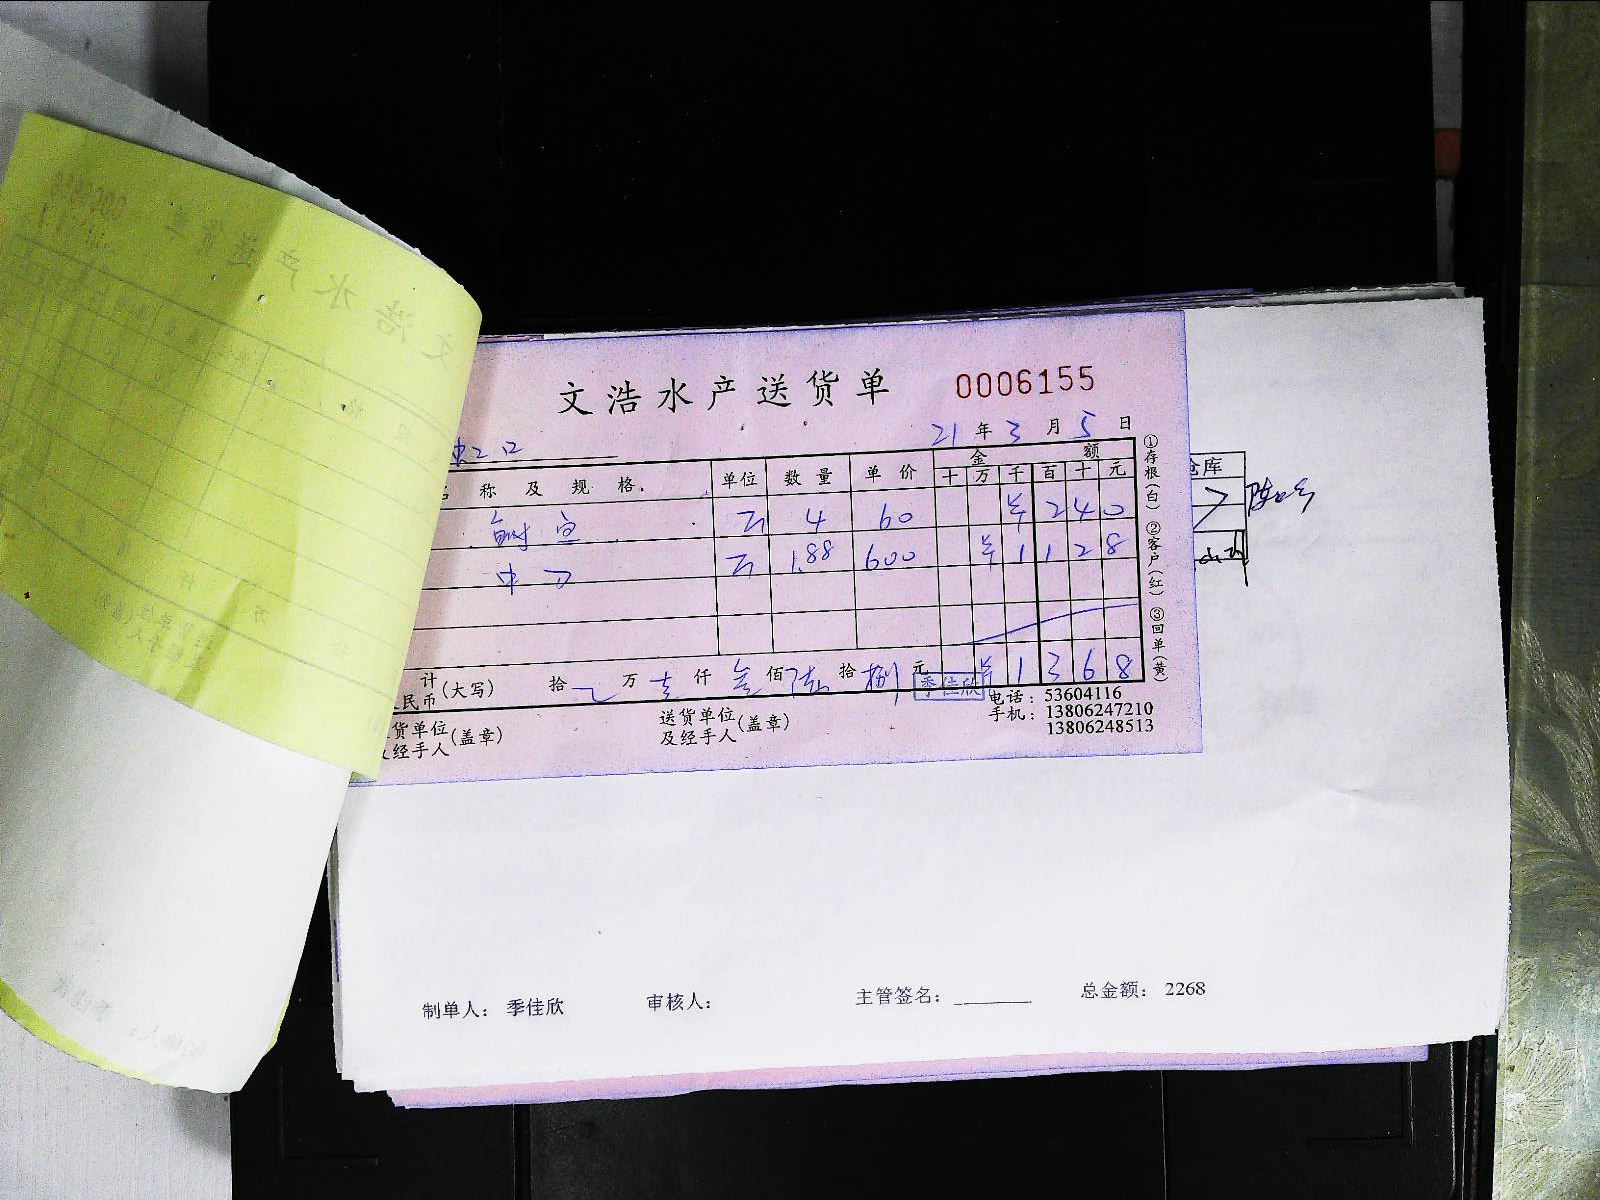 文浩水产送货单 0006155
21年3月5日
称及规格 单位 数量 单价 金额
十 万 千 百 十 元
4 60 ¥240
中刀 1.88 600 ¥1128
计
民币(大写) 拾 万 壹 仟 叁 佰 陆 拾 捌 元 ¥1368
季佳欣
货单位
经手人(盖章)
送货单位
及经手人(盖章)
电话：53604116
手机：13806247210
13806248513
①存根(白) ②客户(红) ③回单(黄)
仓库
制单人： 季佳欣 审核人： 主管签名： 总金额： 2268